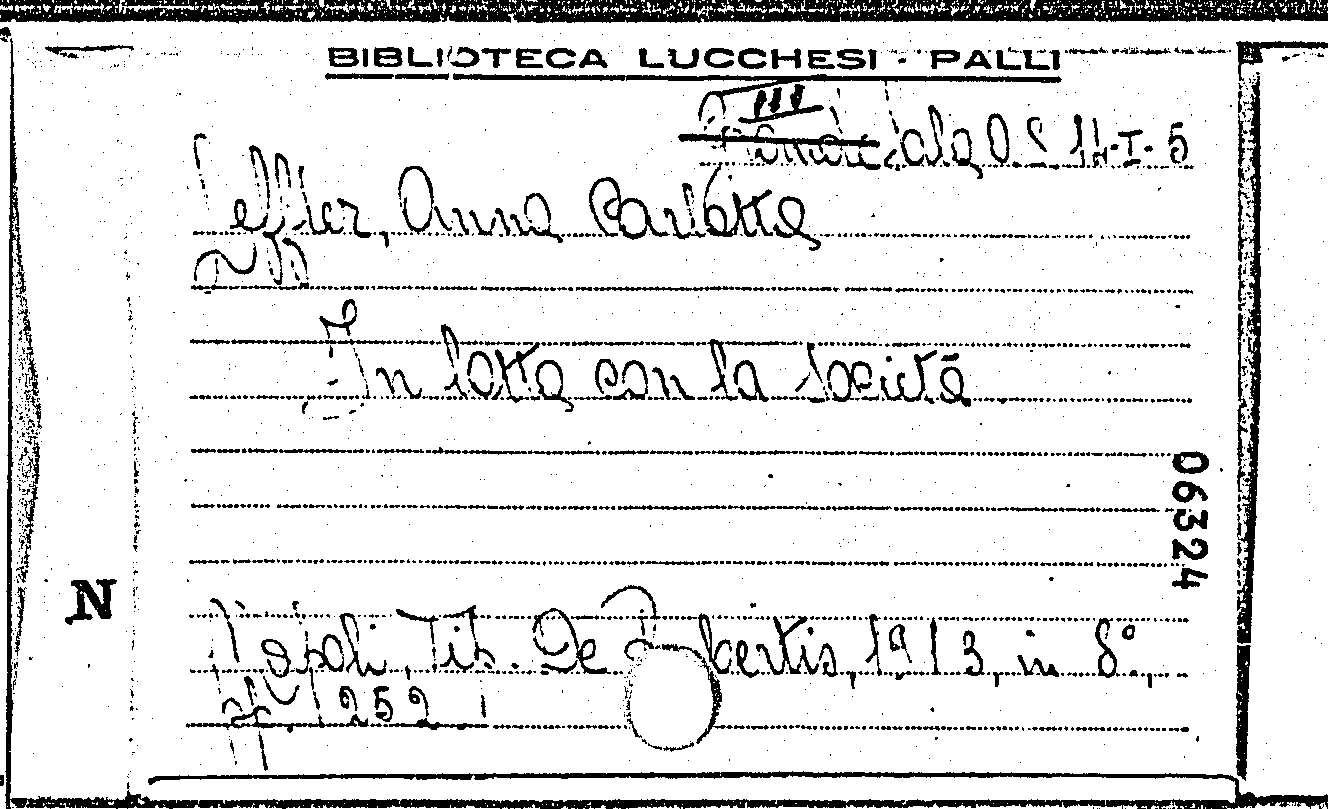 BIBLIOTECA LUCCHESI - PALLI
III
Sala O.S 14-I-5
Leffler, Anna Carlotta
In lotta con la società
06324
N
Napoli, Tip. De Rubertis, 1913, in 8°,
pp. 252